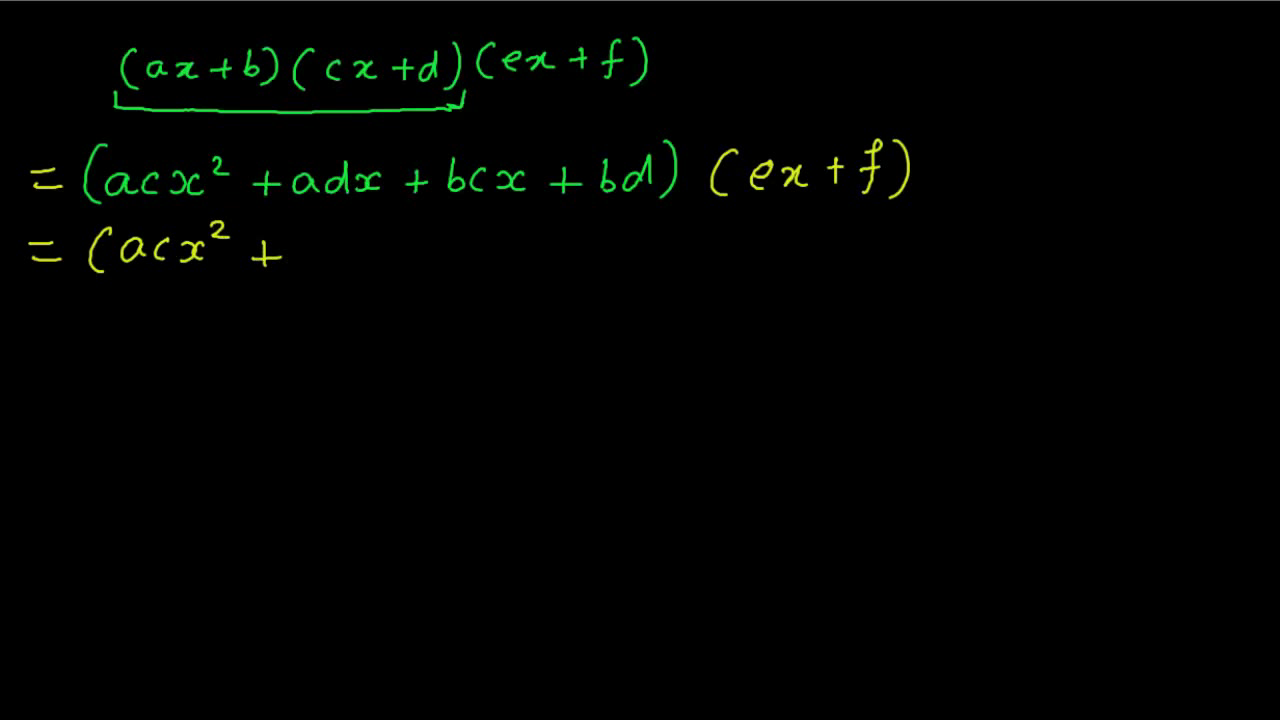 (ax+b)(cx+d)(ex+f)
=(acx²+adx+bcx+bd)(ex+f)
=(acx²+